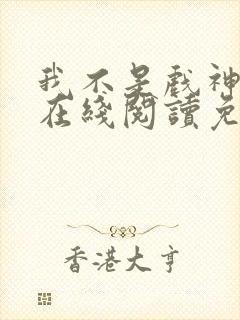 我不是戲神
在綫閱讀免
香港大亨